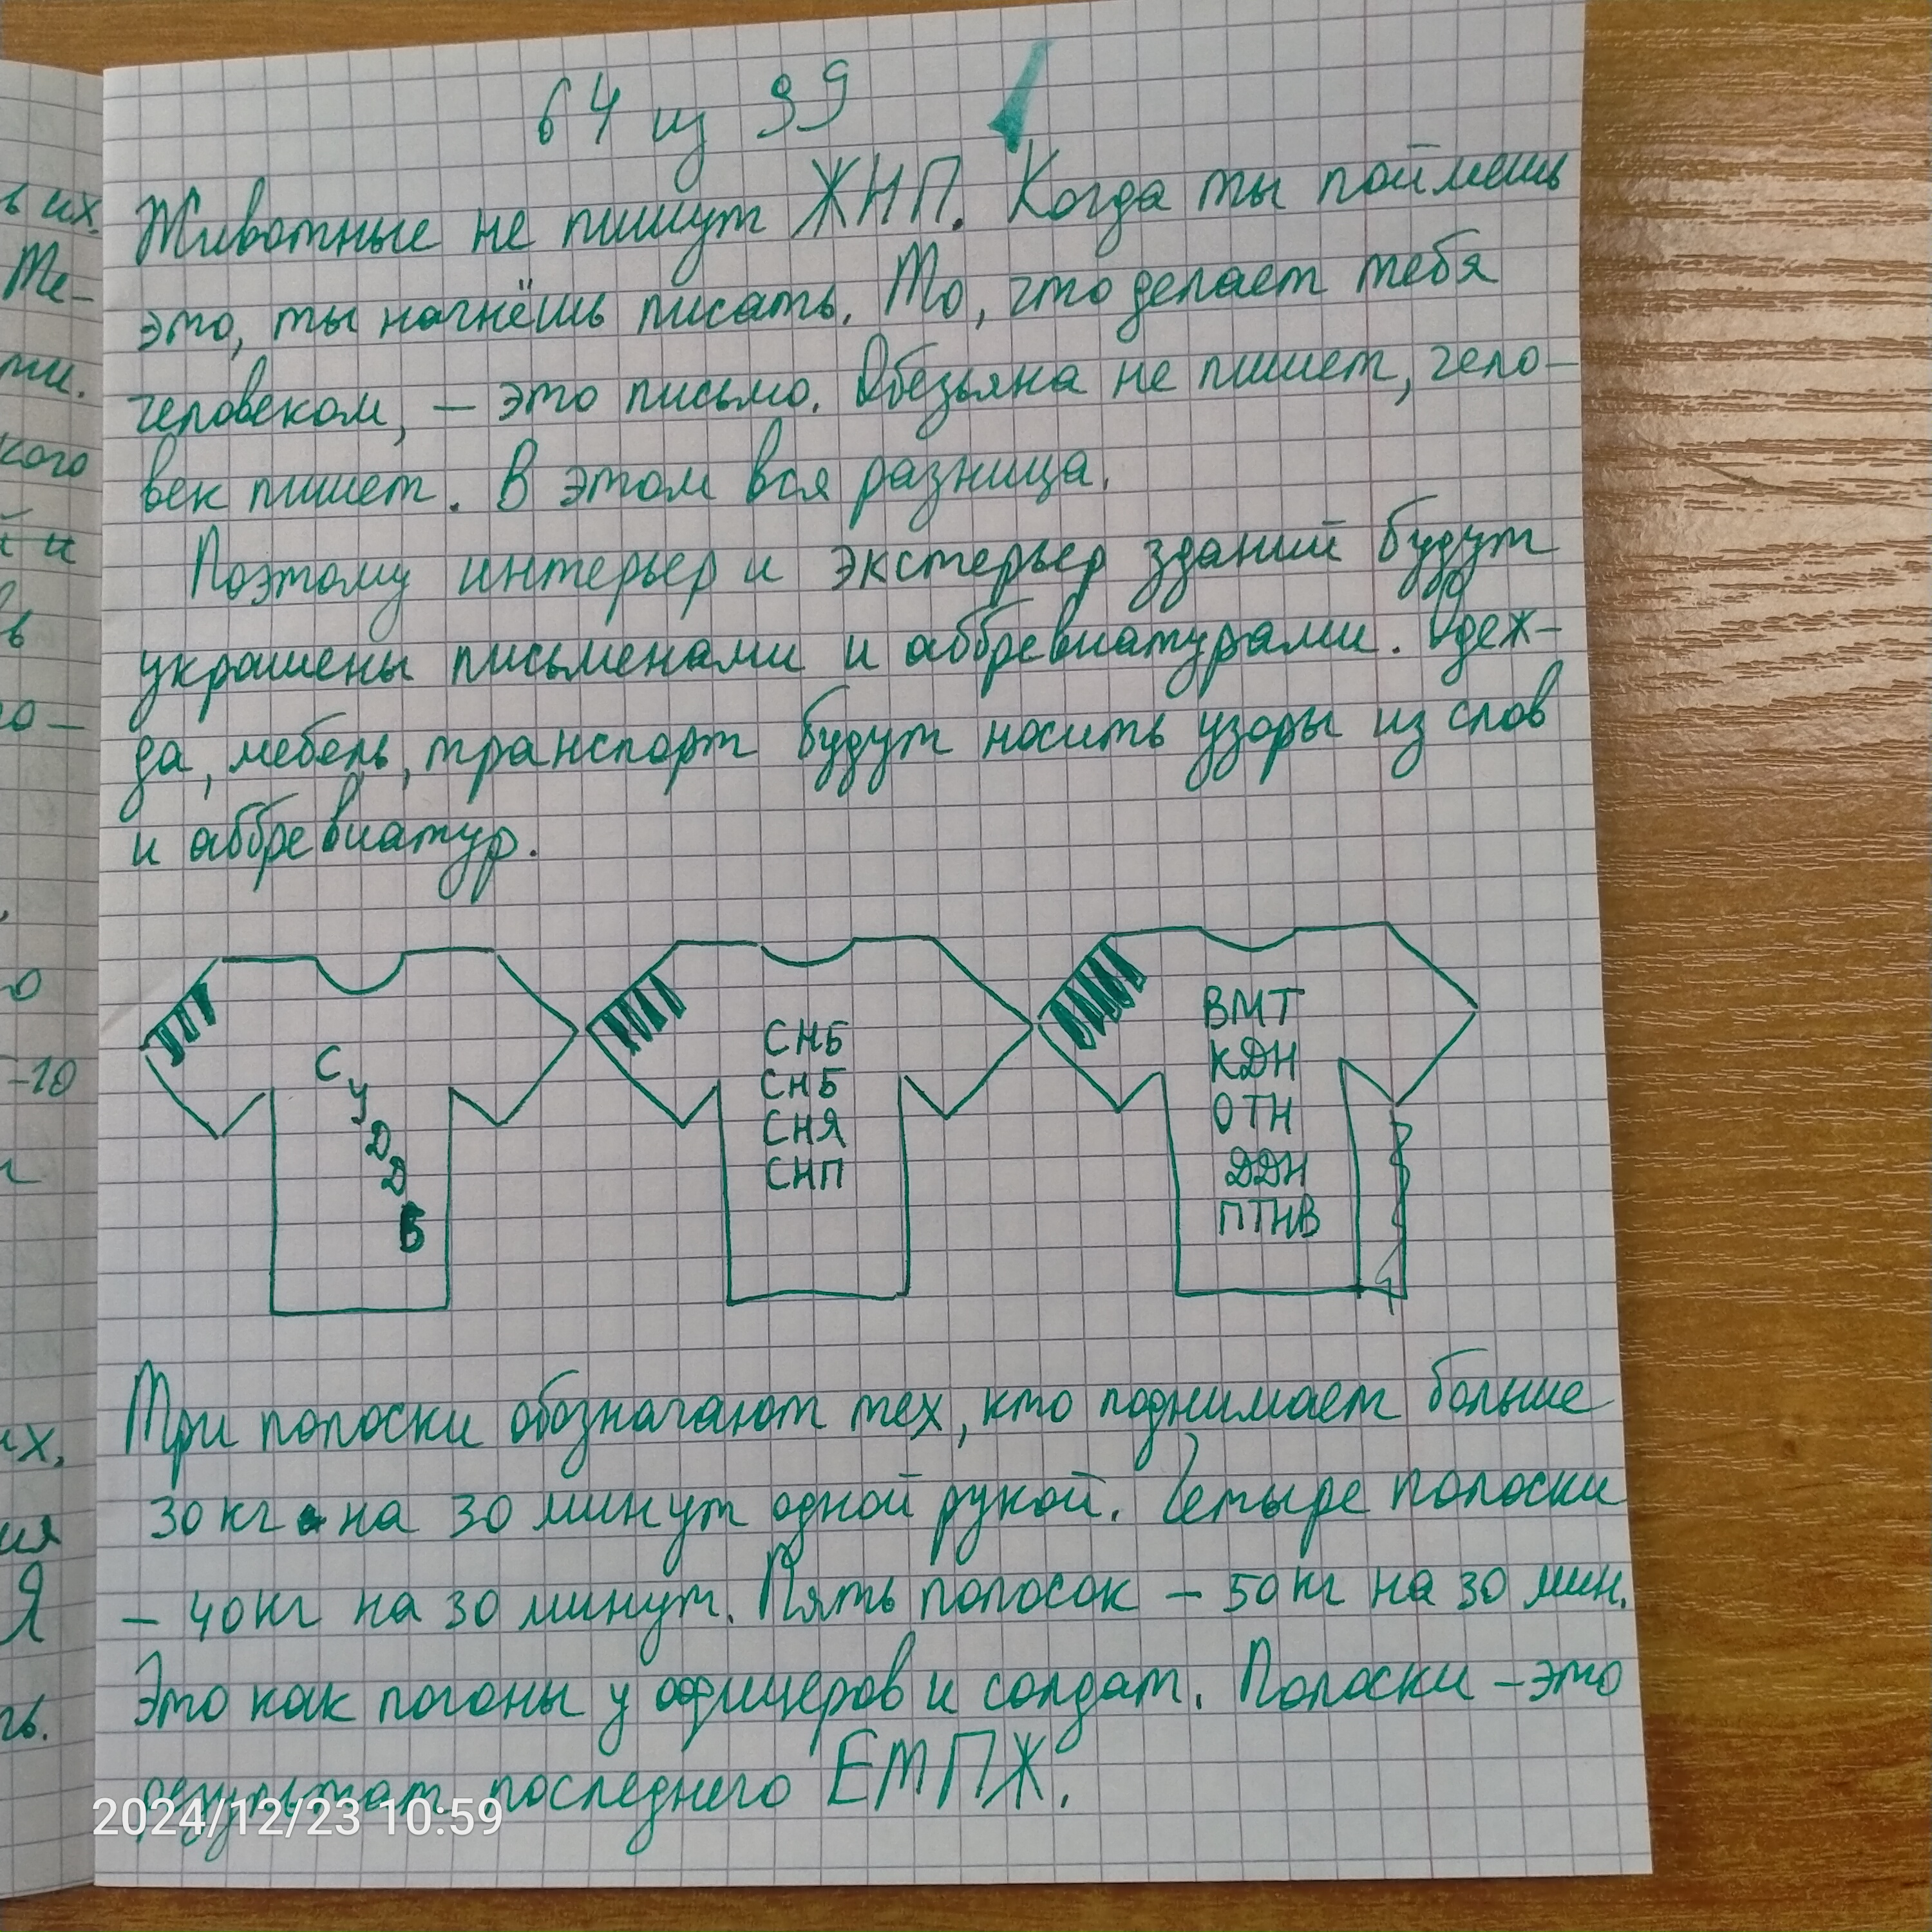 64 из 99
Животные не пишут ЖНП. Когда ты поймёшь
это, ты начнёшь писать. То, что делает тебя
человеком, — это письмо. Обезьяна не пишет, чело-
век пишет. В этом вся разница.
Поэтому интерьер и экстерьер зданий будут
украшены письменами и аббревиатурами. Одеж-
да, мебель, транспорт будут носить узоры из слов
и аббревиатур.
С
У
Д
Д
Б
СНБ
СНБ
СНЯ
СНП
ВМТ
КДН
ОТН
ДДН
ПТНВ
Три полоски обозначают тех, кто поднимает больше
30 кг на 30 минут одной рукой. Четыре полоски
– 40 кг на 30 минут. Пять полосок – 50 кг на 30 мин.
Это как погоны у офицеров и солдат. Полоски – это
результат последнего ЕМПЖ.
2024/12/23 10:59
в их.
Те-
кого
й и
в
-10
их.
ия
Я
ть.